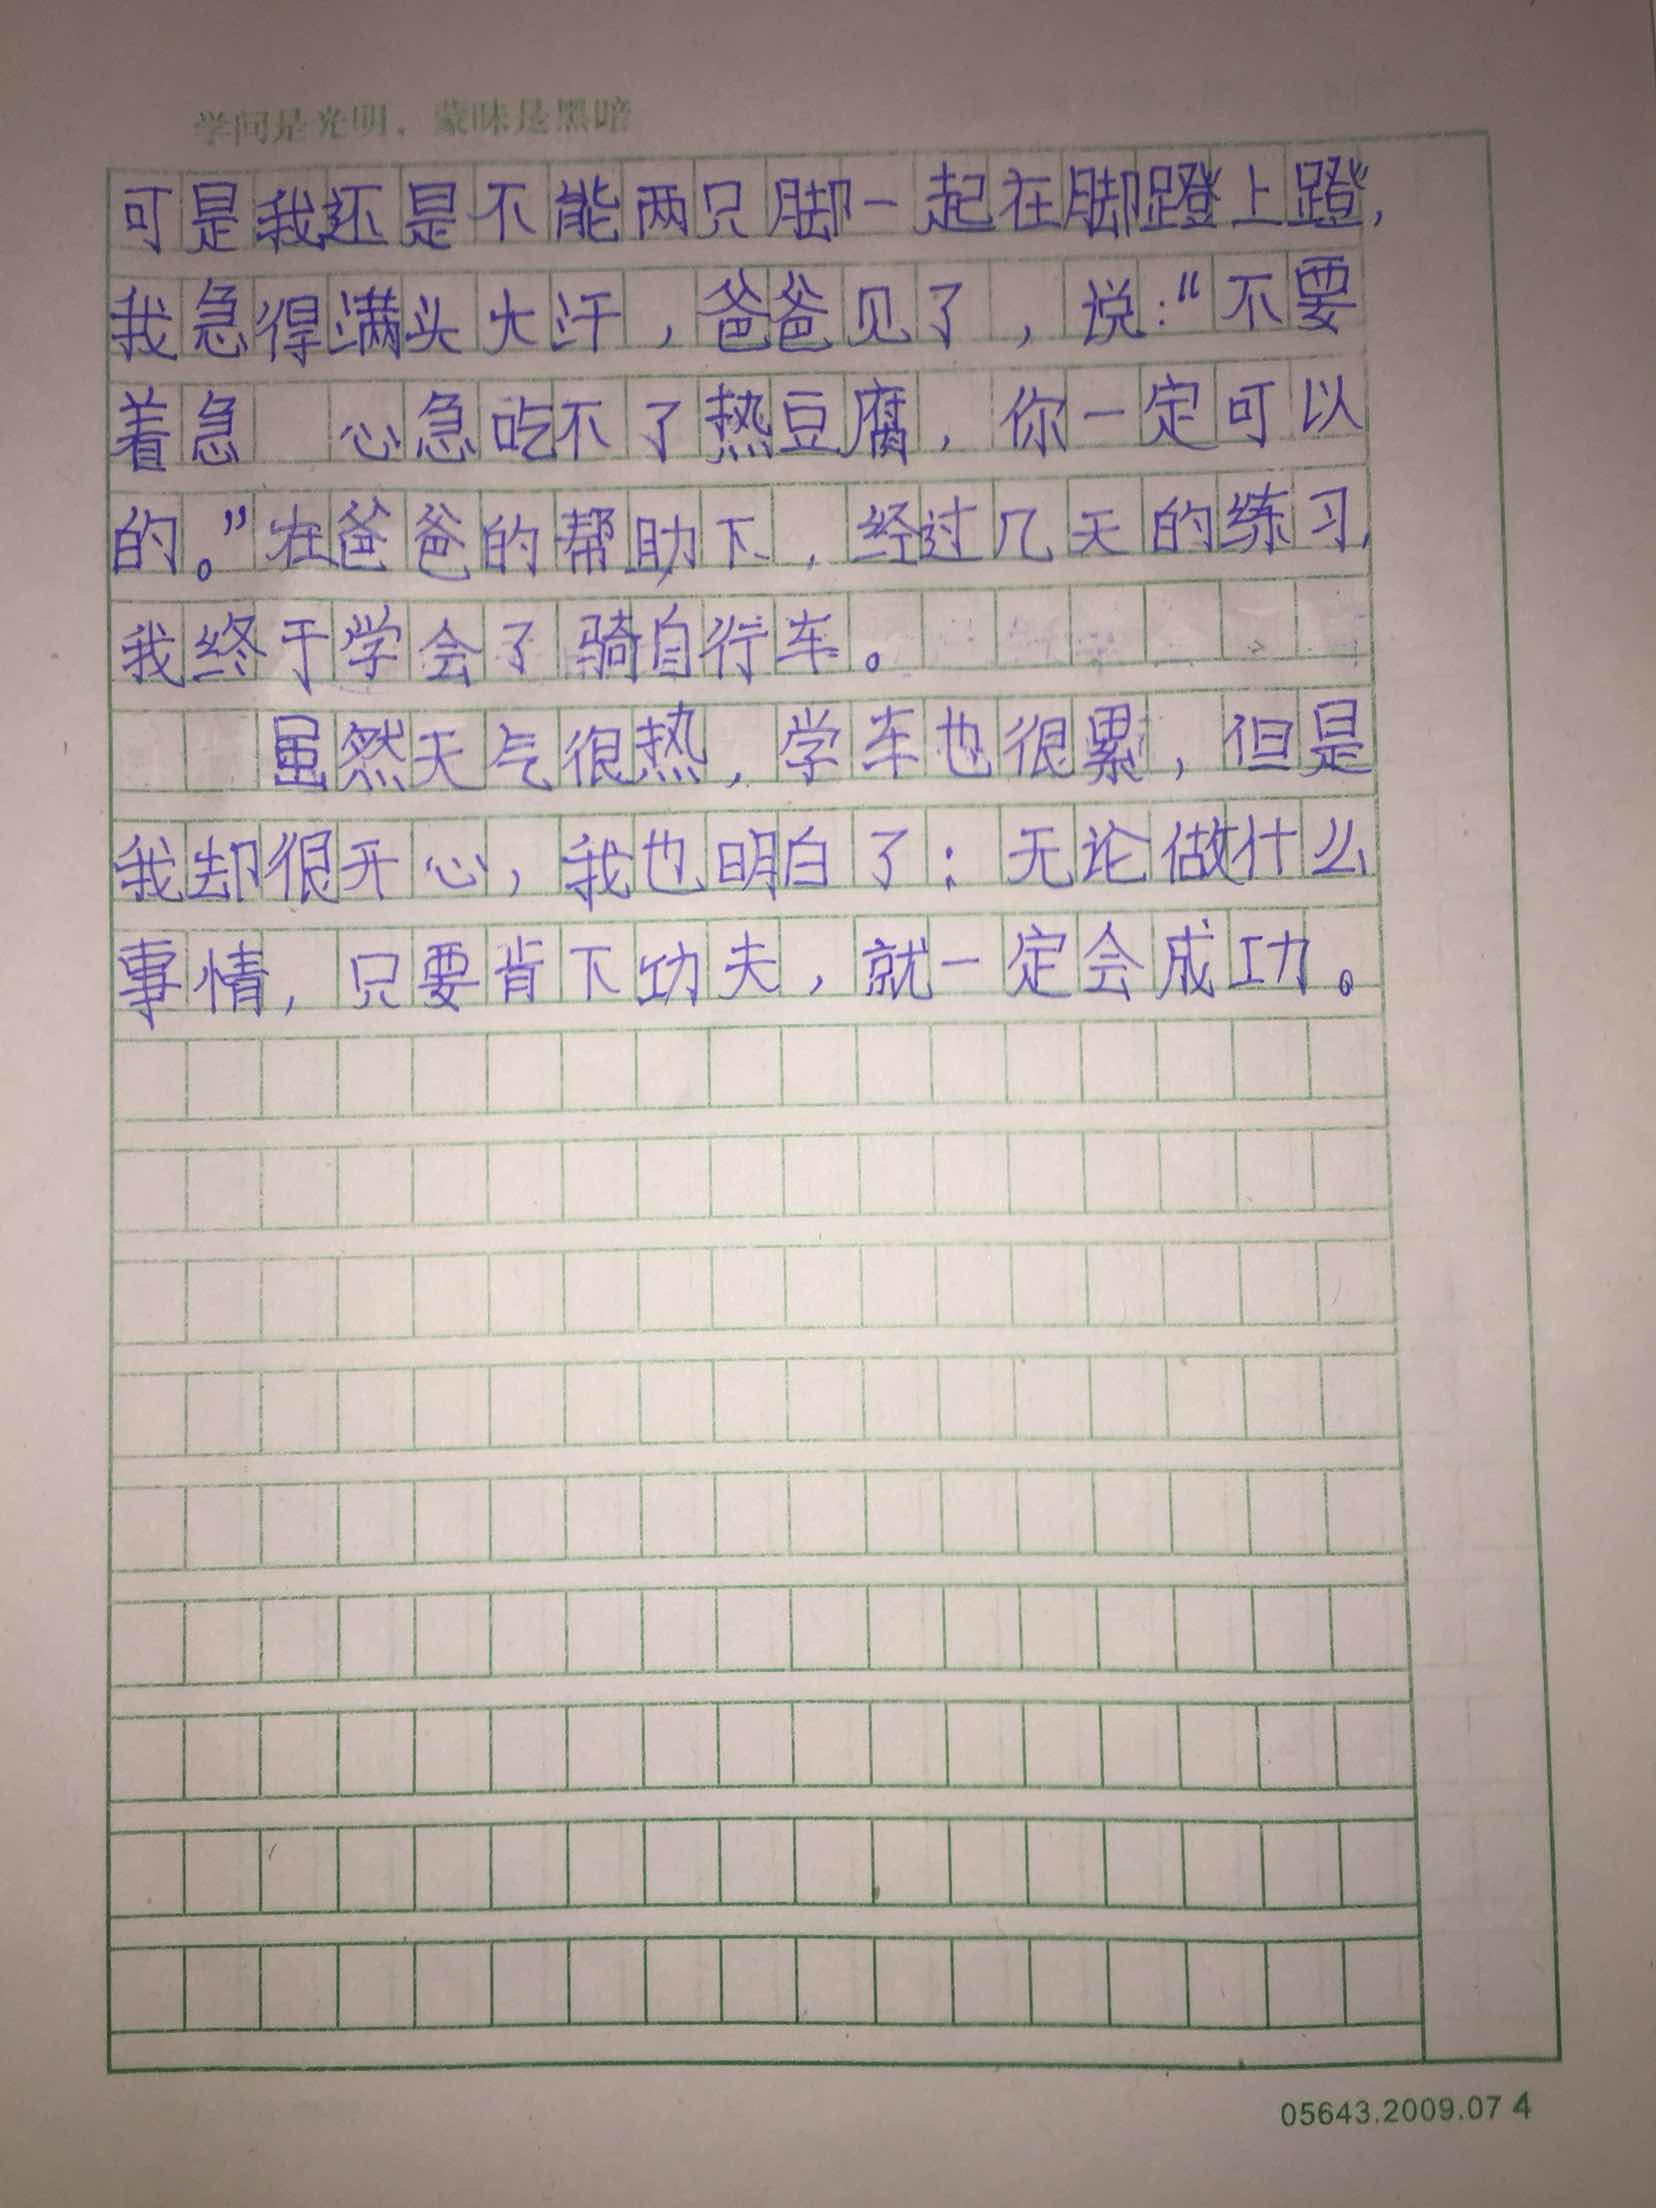 学问是光明，蒙昧是黑暗
可是我还是不能两只脚一起在脚蹬上蹬，
我急得满头大汗，爸爸见了，说：“不要
着急 心急吃不了热豆腐，你一定可以
的。”在爸爸的帮助下，经过几天的练习，
我终于学会了骑自行车。
虽然天气很热，学车也很累，但是
我却很开心，我也明白了：无论做什么
事情，只要肯下功夫，就一定会成功。
05643.2009.07 4